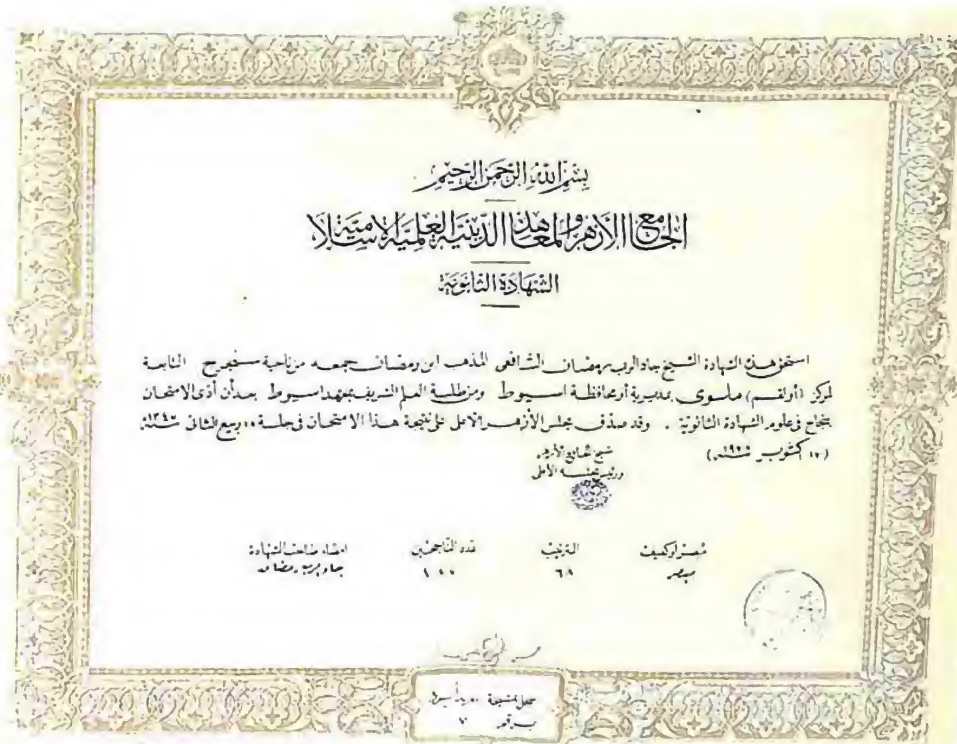 بسم الله الرحمن الرحيم
الجامع الأزهر والمعاهد الدينية العلمية الإسلامية
الشهادة الثانوية
استحق هذه الشهادة الشيخ جاد الرب رمضان الشافعى المذهب ابن رمضان جمعه من ناحية التابعة
لمركز (أو لقسم) ملوى بمديرية أو محافظة اسيوط ومن طلبة العلم الشريف بمعهد اسيوط بعد أن أدى الامتحان
بنجاح فى علوم الشهادة الثانوية . وقد صدق مجلس الأزهر الأعلى على نتيجة هذا الامتحان فى جلسة ربيع الثانى سنة
اكتوبر سنة
شيخ الجامع الأزهر
ورئيس مجلسه الأعلى
مبصر أو كفيف الترتيب عدد الناجحين امضاء صاحب الشهادة
مبصر ٦٨ ١٠٠ جاد الرب رمضان
سجل بمشيخة
برقم ٧